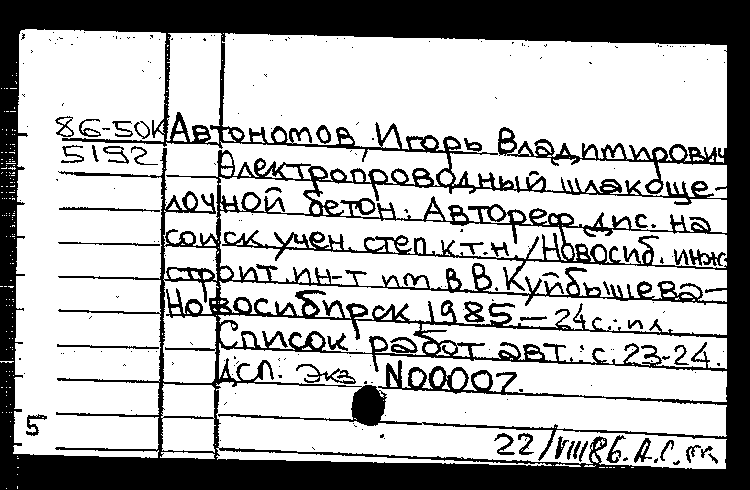 86-50К Автономов, Игорь Владимирович
5192 Электропроводный шлакоще-
лочной бетон: Автореф. дис. на
соиск. учен. степ. к.т.н. / Новосиб. инж.
строит. ин-т им. В.В. Куйбышева.-
Новосибирск, 1985.- 24с.: ил.
Список работ авт.: с. 23-24.
ДСП. Экз. N00007.
5
22/VIII86. А.С.